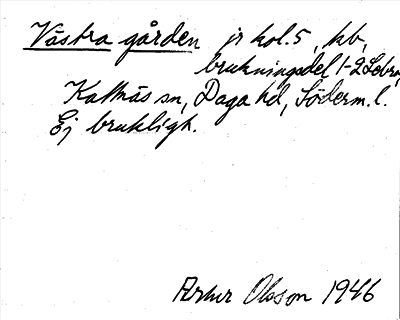 Västra gården jr kol. 5, hb,
brukningsdel 1-2 Lebro,
Kattnäs sn, Daga hd, Söderm. l.
Ej brukligh.
Artur Olsson 1946